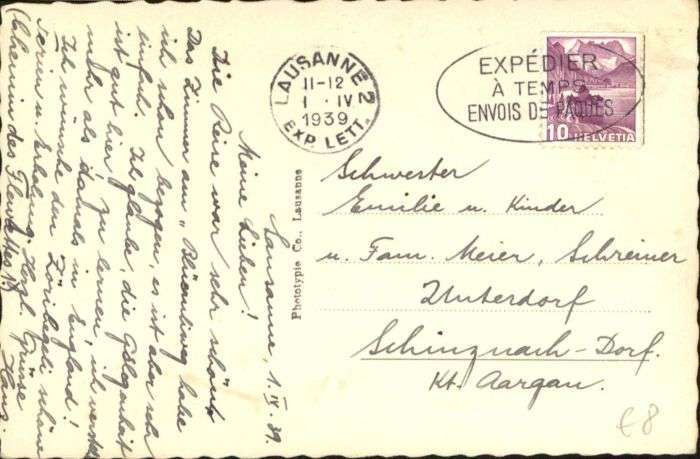 Lausanne, 1. IV. 39.
Meine Lieben!
Die Reise war sehr schön
Das Zimmer am habe
ich schon bezogen, es ist aber sehr
einfach. Ich glaube, die Gelegenheit
ist gut hier, zu lernen, ich verstehe
mehr als damals in England!
Ich wünsche den schöne
Ferien u. Erholung. Herzl. Grüsse
(Chemin des 13) Hans.
LAUSANNE 2
11-12
1. IV
1939
EXP. LETT.
EXPÉDIER
À TEMPS
ENVOIS DE PÂQUES
10 HELVETIA
Phototypie Co., Lausanne
Schwester
Emilie u. Kinder
u. Fam. Meier, Schreiner
Unterdorf
Schinznach-Dorf.
Kt. Aargau.
€8